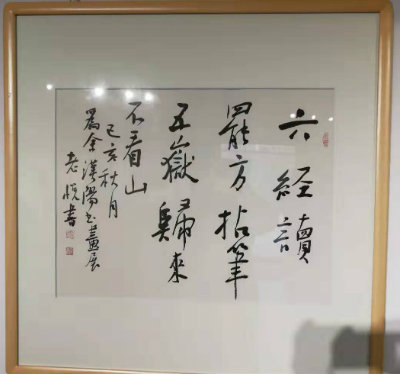 六經讀
罷方拈筆
五嶽歸來
不看山
己亥秋月
爲余漢陽书畫展
老悅書